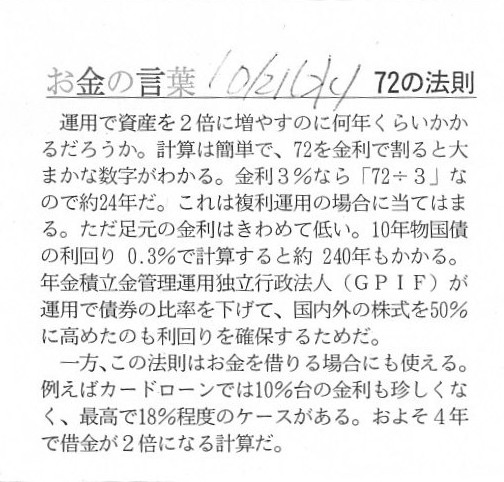 お金の言葉 10/21(水) 72の法則
運用で資産を２倍に増やすのに何年くらいかか
るだろうか。計算は簡単で、72を金利で割ると大
まかな数字がわかる。金利３％なら「72÷３」な
ので約24年だ。これは複利運用の場合に当てはま
る。ただ足元の金利はきわめて低い。10年物国債
の利回り 0.3％で計算すると約 240年もかかる。
年金積立金管理運用独立行政法人（ＧＰＩＦ）が
運用で債券の比率を下げて、国内外の株式を50％
に高めたのも利回りを確保するためだ。
一方、この法則はお金を借りる場合にも使える。
例えばカードローンでは10％台の金利も珍しくな
く、最高で18％程度のケースがある。およそ４年
で借金が２倍になる計算だ。